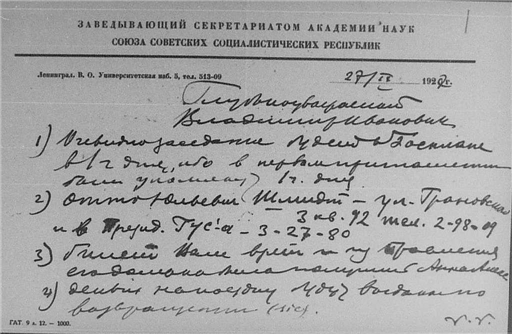 ЗАВЕДЫВАЮЩИЙ СЕКРЕТАРИАТОМ АКАДЕМИИ НАУК
СОЮЗА СОВЕТСКИХ СОЦИАЛИСТИЧЕСКИХ РЕСПУБЛИК
Ленинград. В. О. Университетская наб. 5, тел. 513-09
27/IX 192 г.
Глубокоуважаемый
Владимир Иванович
1) Очевидно заседание будет в Госплане
в 1 ч дня, ибо в первом
1 ч. дня
2) Отто Юльевич Шмидт – ул. Грановского
3 кв. 92 тел. 2-98-09
и в През. ГУС'а – 3-27-80
3) билет Вам
4) деньги на поездку будут выданы по
возвращении (sic).
ГАТ. 9 л. 12. — 1000.